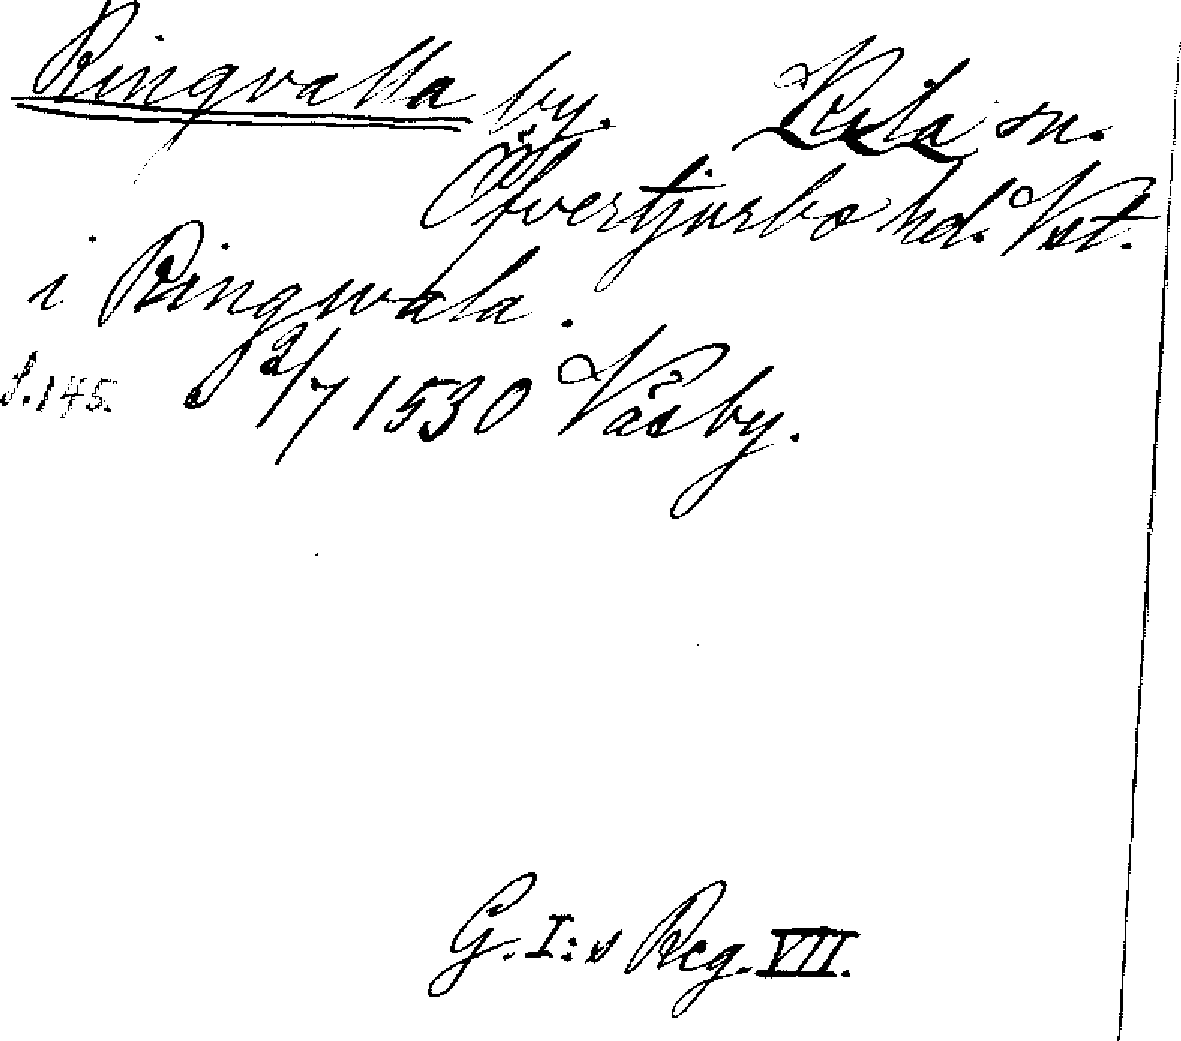 Ringvalla by. Kila sn.
Öfvertjurbo hd. Vst.
i Ringwala.
S. 145. P 2/7 1530 Väsby.
G. I:s Reg. VII.